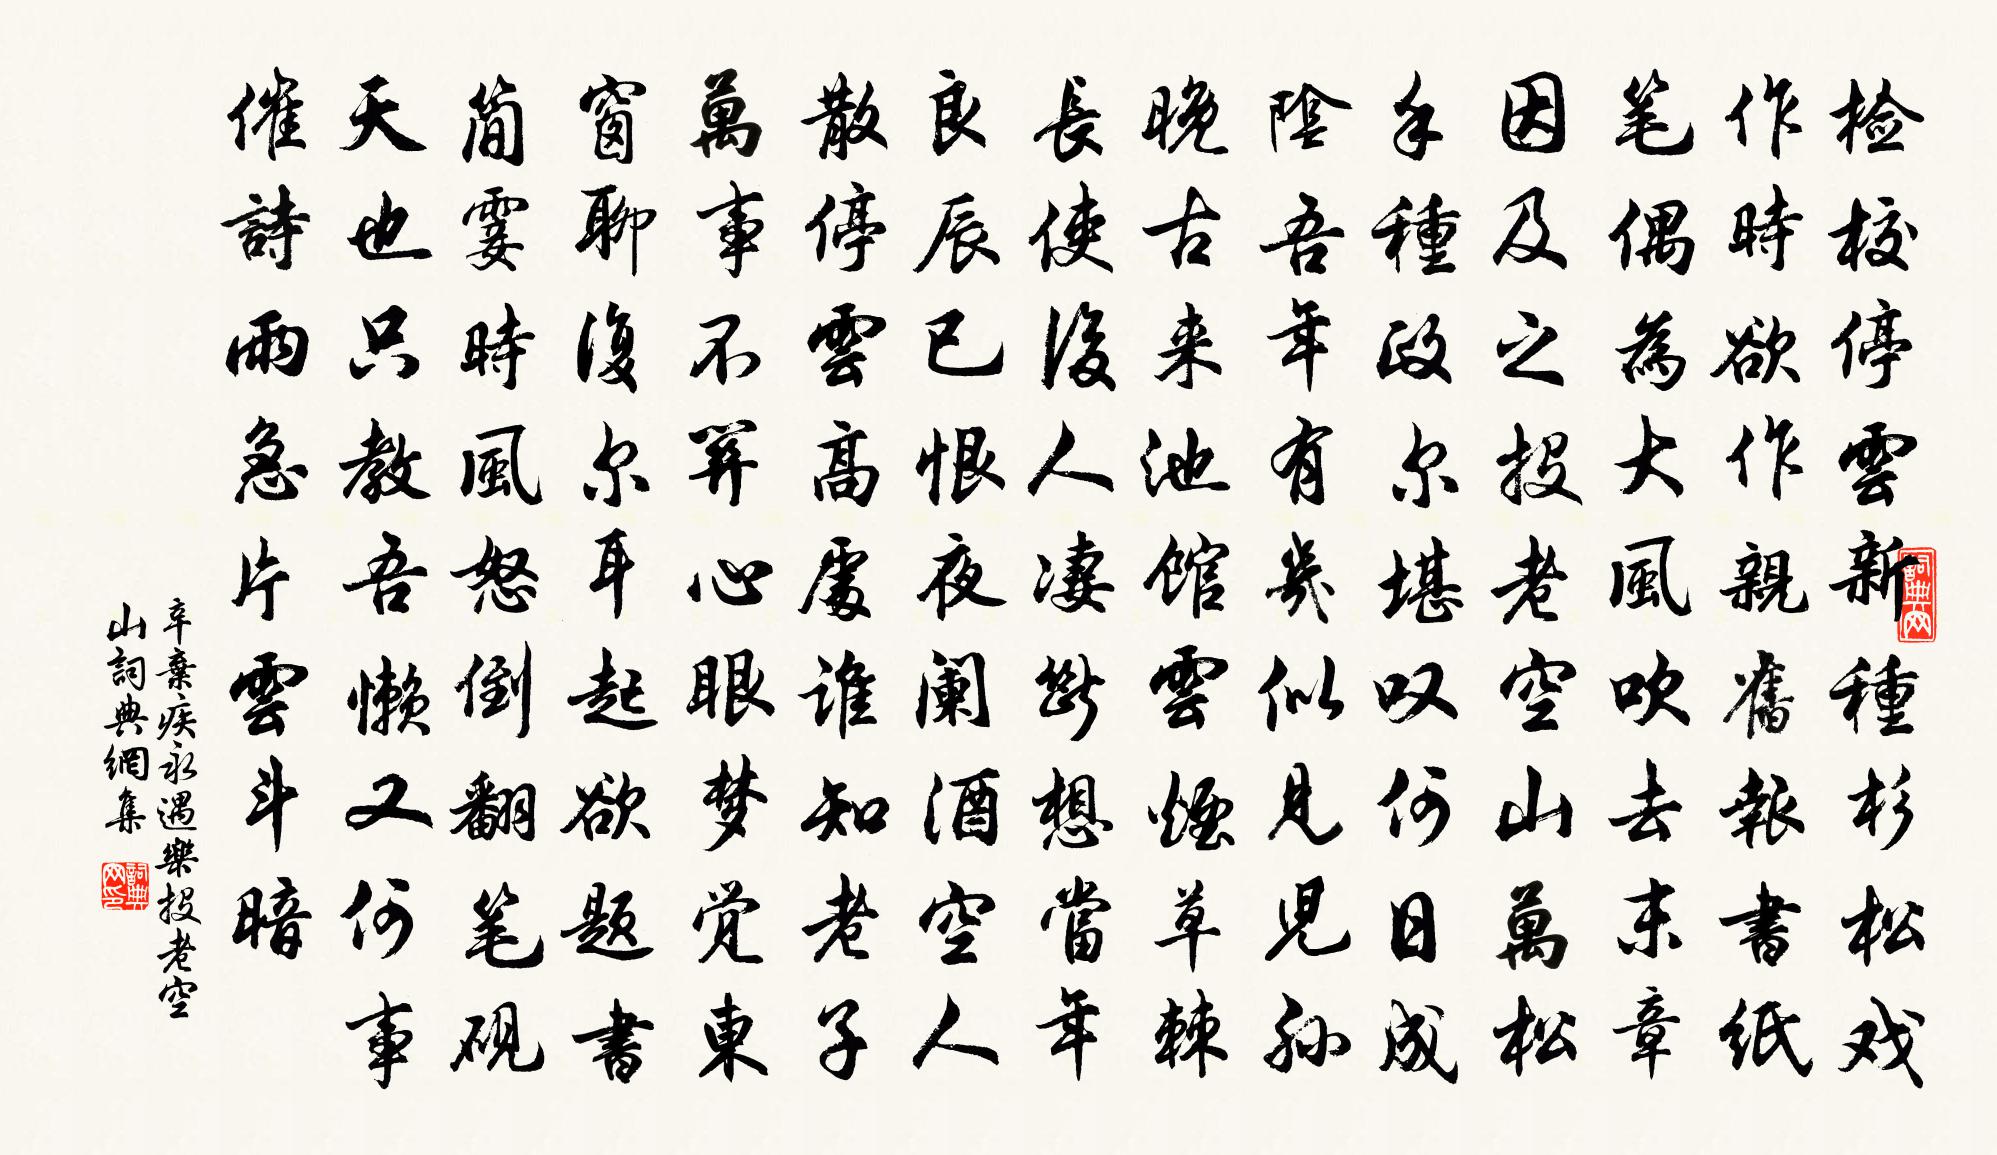 检校停雲新種杉松戏
作時欲作親舊報書紙
笔偶為大風吹去末章
因及之投老空山萬松
手種政尔堪叹何日成
陰吾年有幾似見児孫
晚古来池館雲煙草棘
長使後人凄断想當年
良辰已恨夜阑酒空人
散停雲高處谁知老子
萬事不關心眼梦觉東
窗聊復尔耳起欲题書
简霎時風怒倒翻笔砚
天也只教吾懒又何事
催詩雨急片雲斗暗
辛棄疾永遇樂投老空
山詞典網集
詞典网
詞典网印